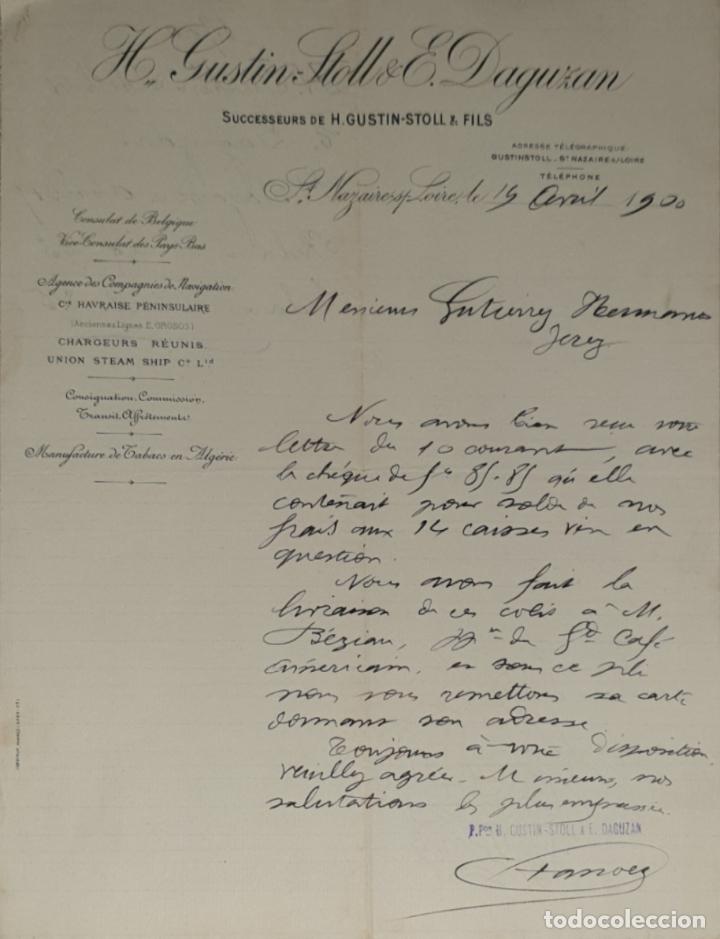 H. Gustin-Stoll & E. Daguzan
SUCCESSEURS DE H. GUSTIN-STOLL & FILS
ADRESSE TÉLÉGRAPHIQUE:
GUSTINSTOLL_ST NAZAIRE S/LOIRE
TÉLÉPHONE
St Nazaire s/ Loire, le 14 Avril 1900
Consulat de Belgique
Vice-Consulat des Pays-Bas
Agence des Compagnies de Navigation
Cie HAVRAISE PÉNINSULAIRE
(Anciennes Lignes E. GROSOS)
CHARGEURS RÉUNIS
UNION STEAM SHIP Co Ltd
Consignation, Commission,
Transit, Affrètements
Manufacture de Tabacs en Algérie
Messieurs Gutierrez Hermanos
Jerez
Nous avons bien reçu votre
lettre du 10 courant, avec
le chèque de fcs 85.85 qu'elle
contenait pour solde de nos
frais aux 14 caisses vin en
question.
Nous avons fait la
livraison de ces colis à M.
Bézian, du Gd Café
Américain, en sous ce pli
nous vous remettons sa carte
donnant son adresse.
Toujours à votre disposition
veuillez agréer, Messieurs, nos
salutations les plus empressées.
P. Pon H. GUSTIN-STOLL & E. DAGUZAN
todocoleccion